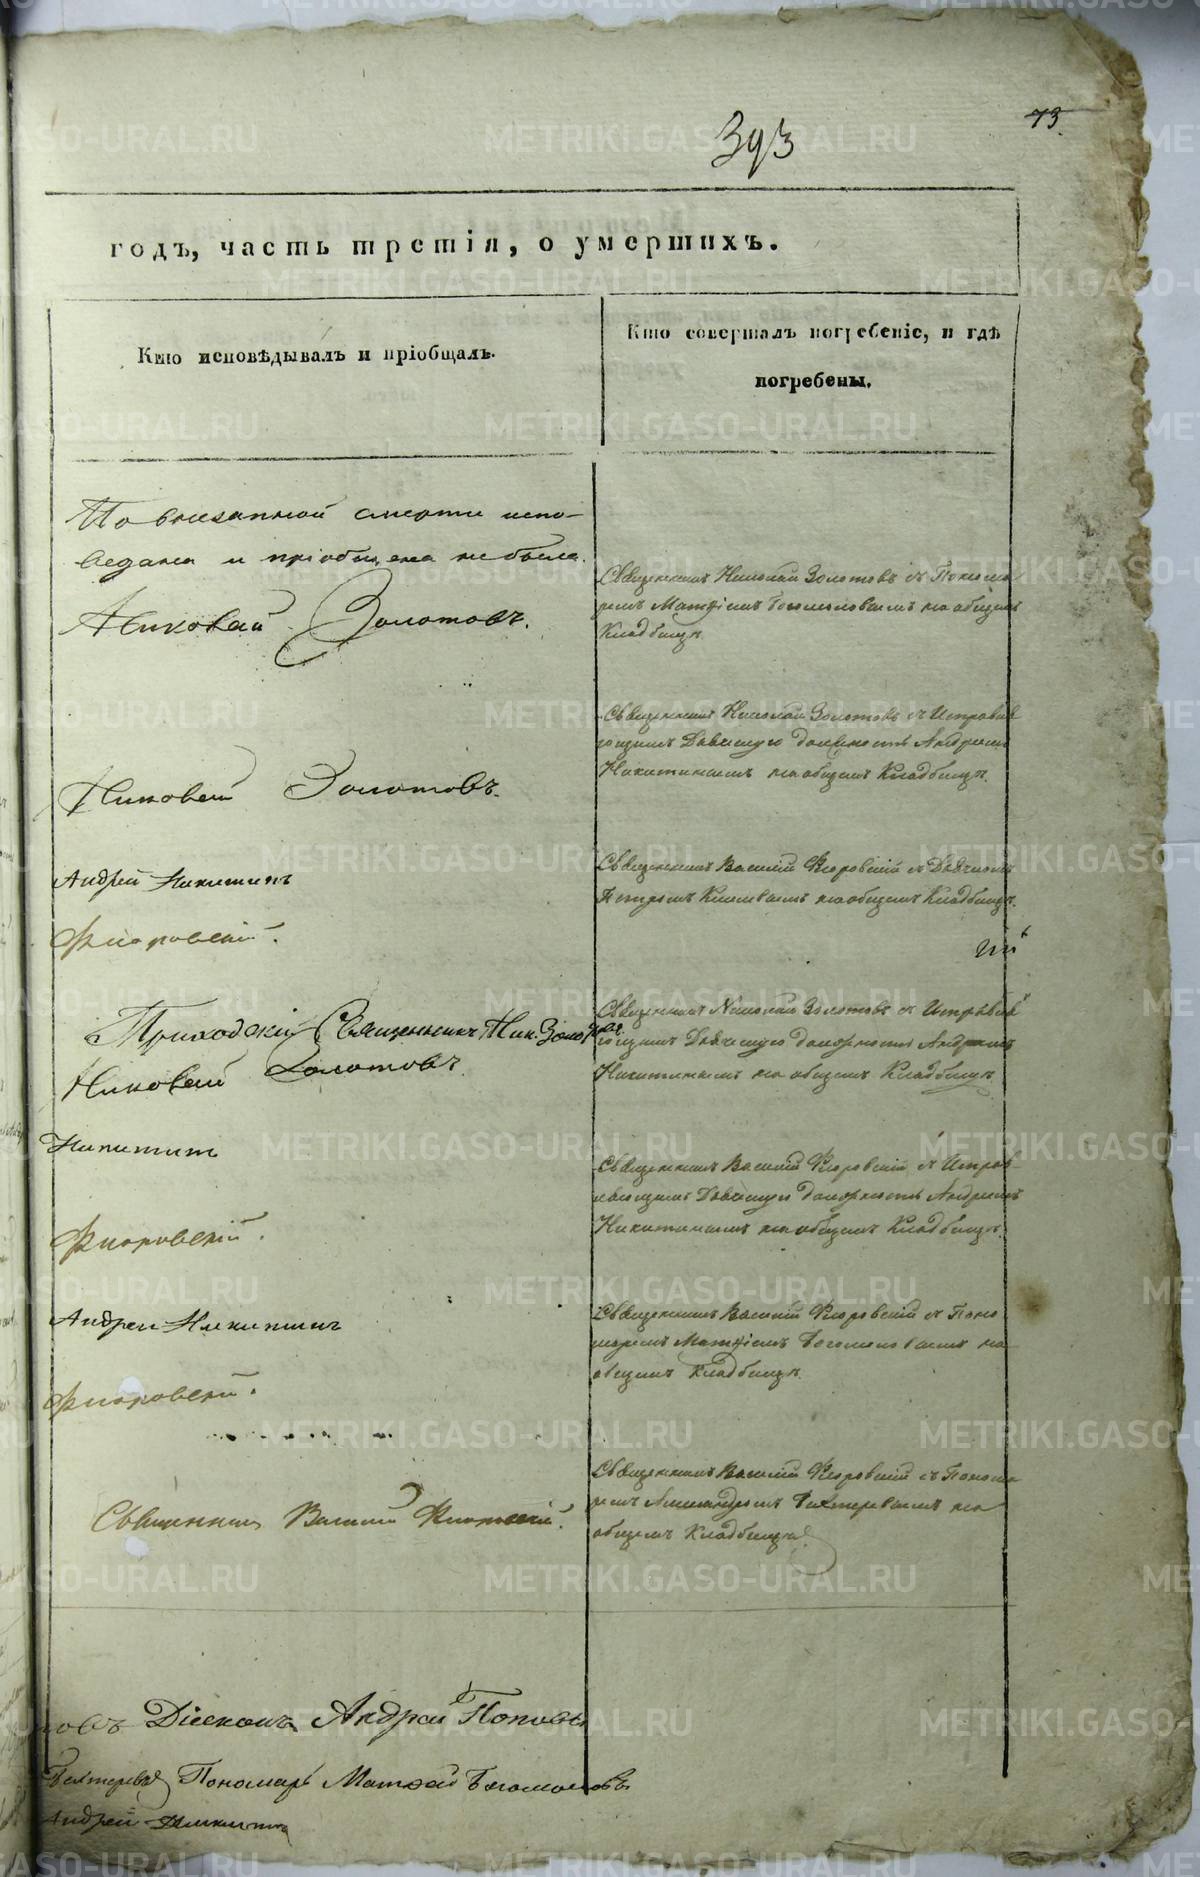 393
73.
годъ, часть третія, о умершихъ.
Кто исповѣдывалъ и пріобщалъ.
Кто совершалъ погребеніе, и гдѣ
погребены.
По внезапной смерти испо-
ведана и пріобщена небыла.
Николай Золотовъ.
Священникъ Николай Золотовъ съ Понома
ремъ Матѳіемъ Богомоловымъ на общемъ
Кладбищѣ
Николай Золотовъ.
Священникъ Николай Золотовъ съ Исправ
ющимъ Дьяческую должность Андреемъ
Никитинымъ на общемъ Кладбищѣ.
Андрей Никитинъ
Флоровскій.
Священникъ Василій Флоровскій съ Дьячкомъ
Петромъ на общемъ Кладбищѣ.
Приходскій Священникъ Ник. Золотовъ
Николай Золотовъ.
Священникъ Николай Золотовъ съ Исправ
ющимъ Дьяческую должность Андреемъ
Никитинымъ на общемъ Кладбищѣ
Никитинъ
Флоровскій.
Священникъ Василій Флоровскій съ Исправ-
ляющимъ Дьяческую должность Андреемъ
Никитинымъ на общемъ Кладбищѣ.
Андрей Никитинъ
Флоровскій.
Священникъ Василій Флоровскій съ Поно
маремъ Матѳіемъ Богомоловымъ на
общемъ Кладбищѣ.
Священникъ Василій Флоровскій.
Священникъ Василій Флоровскій съ Понома
ремъ Александромъ Бехтеревымъ на
общемъ Кладбищѣ
овъ Діаконъ Андрей Поповъ
Бехтеревъ Пономарь Матѳей Богомоловъ
Андрей Никитинъ
METRIKI.GASO-URAL.RU